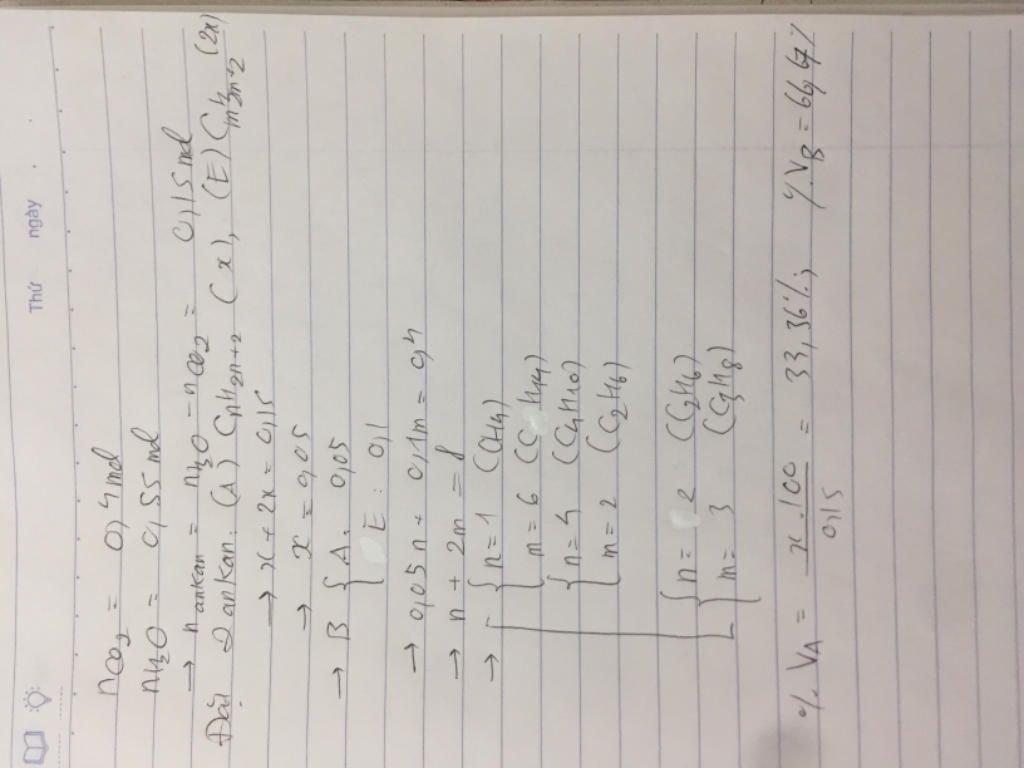 Thứ ngày
nCO₂ = 0,4 mol
nH₂O = 0,55 mol
→ n ankan = nH₂O - nCO₂ = 0,15 mol
Đặt 2 ankan: (A) CnH2n+2 (x), (E) CmH2m+2 (2x)
→ x + 2x = 0,15
→ x = 0,05
→ B { A: 0,05
E: 0,1
→ 0,05n + 0,1m = 0,4
→ n + 2m = 8
→ { n = 1 (CH4)
m = 6 (C H14)
{ n = 4 (C4H10)
m = 2 (C2H6)
{ n = 2 (C2H6)
m = 3 (C3H8)
% VA = x.100 / 0,15 = 33,36%; % VB = 66,67%